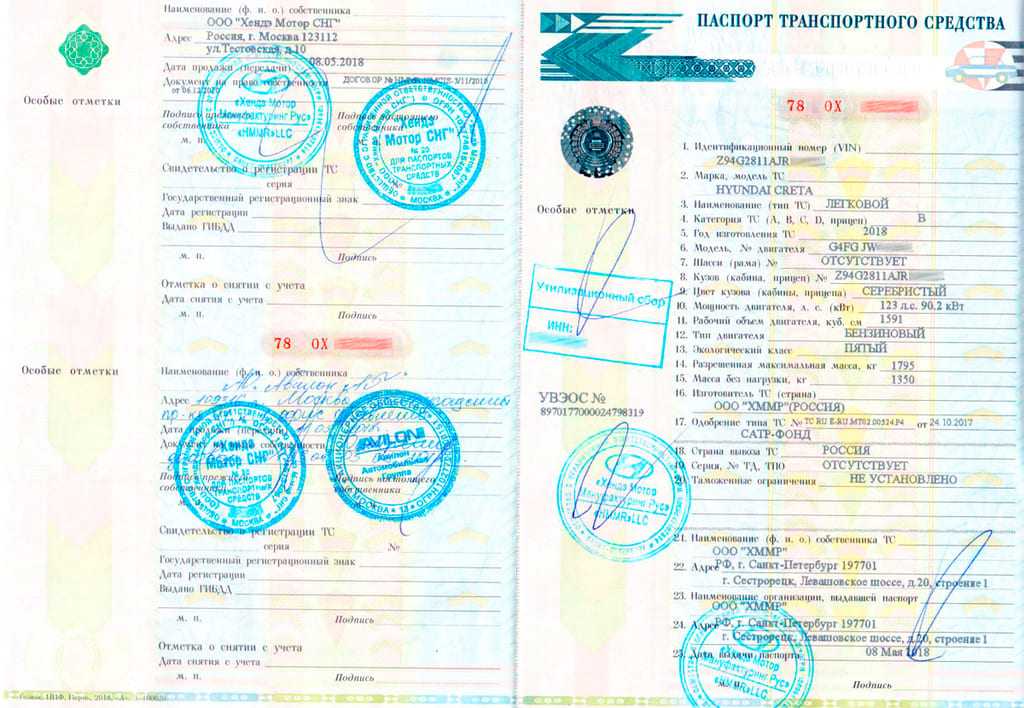 Наименование (ф. и. о.) собственника
ООО "Хендэ Мотор СНГ"
Адрес Россия, г. Москва 123112
ул.Тестовская, д.10
Дата продажи (передачи) 08.05.2018
Документ на право собственности ДОГОВОР №
Особые отметки
Подпись прежнего собственника
Подпись настоящего собственника
м. п.
м. п.
Свидетельство о регистрации ТС
серия №
Государственный регистрационный знак
Дата регистрации
Выдано ГИБДД
м. п. Подпись
Отметка о снятии с учета
Дата снятия с учета
м. п. Подпись
78 ОХ
Особые отметки
Наименование (ф. и. о.) собственника
Адрес Москва
Дата продажи (передачи)
Документ на право собственности
Подпись прежнего собственника
Подпись настоящего собственника
м. п.
Свидетельство о регистрации ТС
серия №
Государственный регистрационный знак
Дата регистрации
Выдано ГИБДД
м. п. Подпись
Отметка о снятии с учета
Дата снятия с учета
м. п. Подпись
«Хендэ Мотор
Мануфактуринг Рус»
«HMMR»LLC
"Хендэ
Мотор СНГ"
№ 20
ДЛЯ ПАСПОРТОВ
ТРАНСПОРТНЫХ
СРЕДСТВ
МОСКВА
"Хендэ
Мотор СНГ"
ДЛЯ ПАСПОРТОВ
ТРАНСПОРТНЫХ
СРЕДСТВ
МОСКВА
AVILON
Авилон
Автомобильная
Группа
МОСКВА
ПАСПОРТ ТРАНСПОРТНОГО СРЕДСТВА
78 ОХ
1. Идентификационный номер (VIN)
Z94G2811AJR
2. Марка, модель ТС
HYUNDAI CRETA
3. Наименование (тип ТС) ЛЕГКОВОЙ
4. Категория ТС (А, В, С, D, прицеп) В
5. Год изготовления ТС 2018
6. Модель, № двигателя G4FG JW
7. Шасси (рама) № ОТСУТСТВУЕТ
8. Кузов (кабина, прицеп) № Z94G2811AJR
9. Цвет кузова (кабины, прицепа) СЕРЕБРИСТЫЙ
10. Мощность двигателя, л. с. (кВт) 123 л.с. 90.2 кВт
11. Рабочий объем двигателя, куб. см 1591
12. Тип двигателя БЕНЗИНОВЫЙ
13. Экологический класс ПЯТЫЙ
14. Разрешенная максимальная масса, кг 1795
15. Масса без нагрузки, кг 1350
16. Изготовитель ТС (страна)
ООО "ХММР"(РОССИЯ)
17. Одобрение типа ТС № TC RU E-RU.MT02.00524.P4 от 24.10.2017
САТР-ФОНД
18. Страна вывоза ТС РОССИЯ
19. Серия, № ТД, ТПО ОТСУТСТВУЕТ
20. Таможенные ограничения НЕ УСТАНОВЛЕНО
21. Наименование (ф. и. о.) собственника ТС
ООО "ХММР"
22. Адрес РФ, г. Санкт-Петербург 197701
г. Сестрорецк, Левашовское шоссе, д.20, строение 1
23. Наименование организации, выдавшей паспорт
ООО "ХММР"
24. Адрес РФ, г. Санкт-Петербург 197701
г. Сестрорецк, Левашовское шоссе, д.20, строение 1
25. Дата выдачи паспорта 08 Мая 2018
Подпись
Особые отметки
Утилизационный сбор
ИНН:
УВЭОС №
8970177000024798319
«Хендэ Мотор
Мануфактуринг Рус»
«HMMR»LLC
«Хендэ Мотор
Мануфактуринг Рус»
«HMMR»LLC